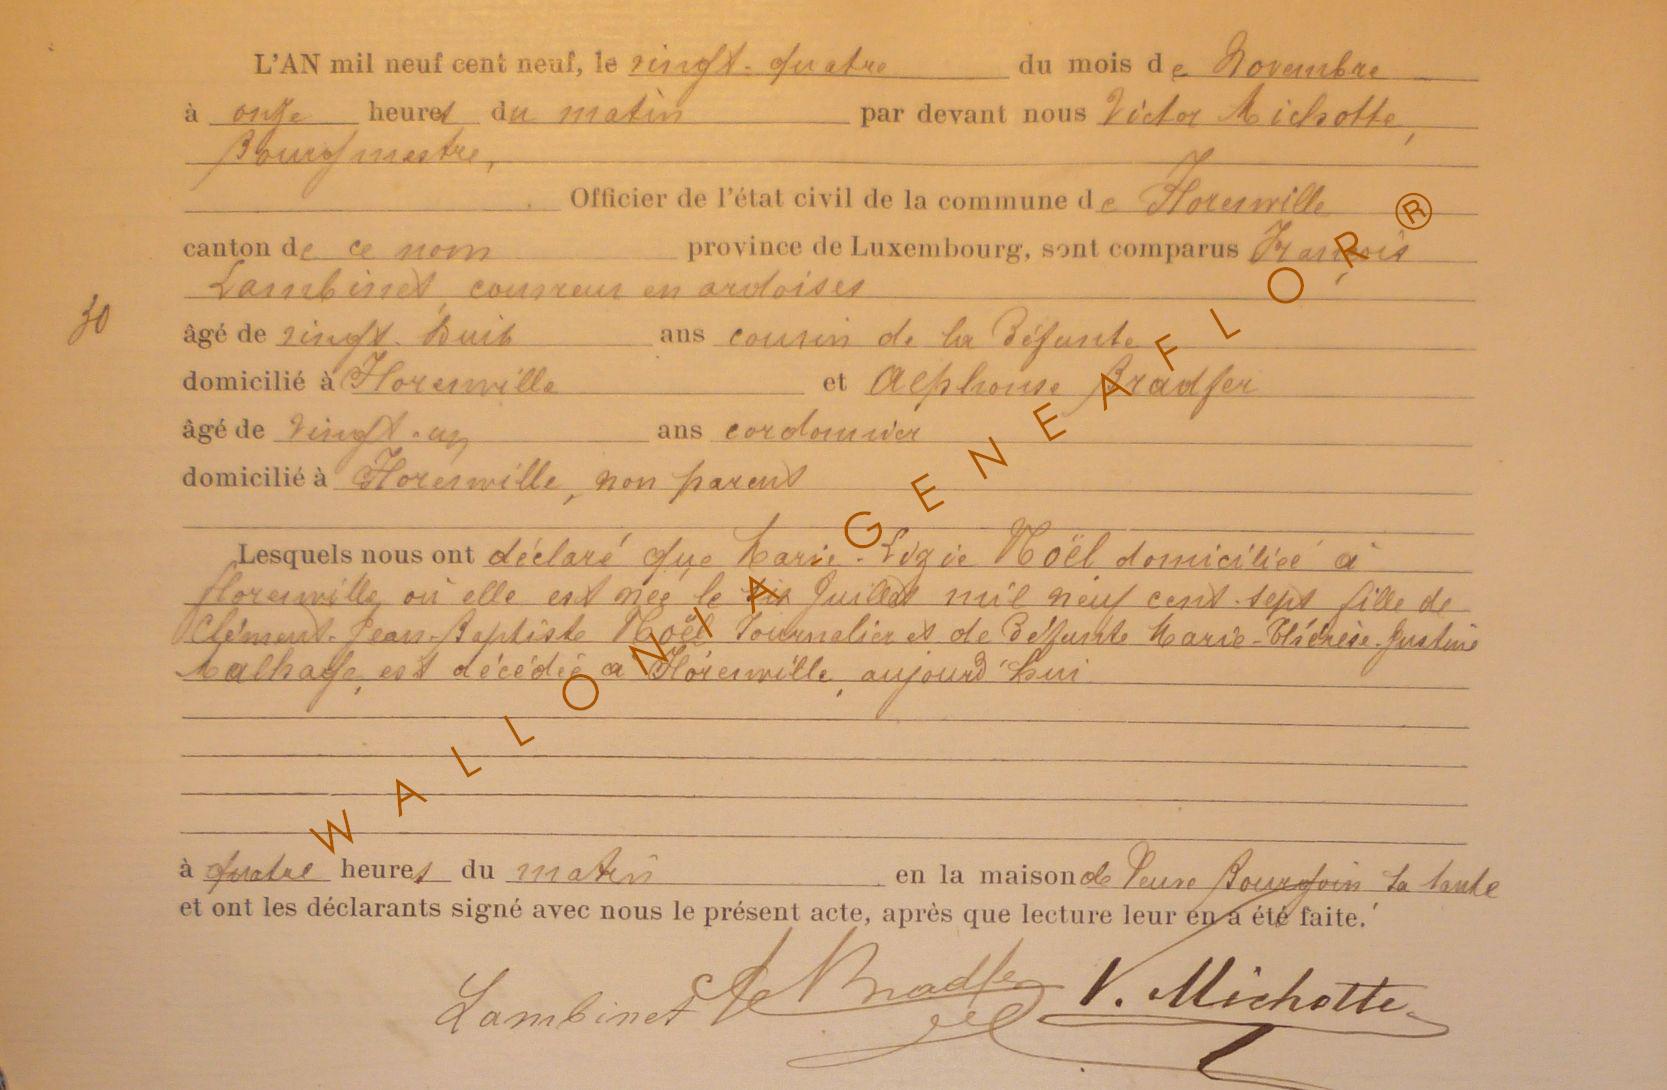 L'AN mil neuf cent neuf, le vingt-quatre du mois de Novembre
à onze heures du matin par devant nous Victor Michotte,
Bourgmestre,
Officier de l'état civil de la commune de Florenville
canton de ce nom province de Luxembourg, sont comparus François
Lambinet, couvreur en ardoises
30
âgé de vingt-huit ans cousin de la défunte
domicilié à Florenville et Alphonse Bradfer
âgé de vingt-un ans cordonnier
domicilié à Florenville, non parent
Lesquels nous ont déclaré que Marie-Ligie Noël domiciliée à
Florenville où elle est née le six Juillet mil neuf cent-sept fille de
Clément-Jean-Baptiste Noël Journalier et de défunte Marie-Thérèse-Justine
Malhage, est décédée à Florenville, aujourd'hui
à quatre heures du matin en la maison de Veuve Bourgoin sa tante
et ont les déclarants signé avec nous le présent acte, après que lecture leur en a été faite.
Lambinet Bradfer V. Michotte
WALLONIA GENEAFLOR ®